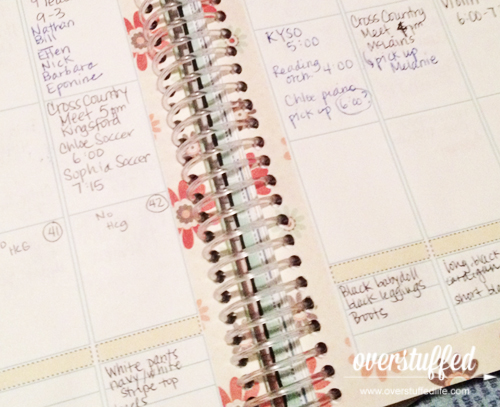 9-3
Nathan
Bill
Ellen
Nick
Barbara
Eponine
Cross Country
Meet 5pm
Kingsford
Chloe Soccer
6:00
Sophia Soccer
7:15
HCG
41
No
Hcg
42
White pants
navy/white
stripe top
KYSO
5:00
Reading
orch. 4:00
Chloe piano
pick up 6:00?
Cross Country
Meet 4pm
Melanie
pick up
Melanie
6:00-7
Black babydoll
black leggings
Boots
long, black
cardigan
short
overstuffed
www.overstuffedlife.com